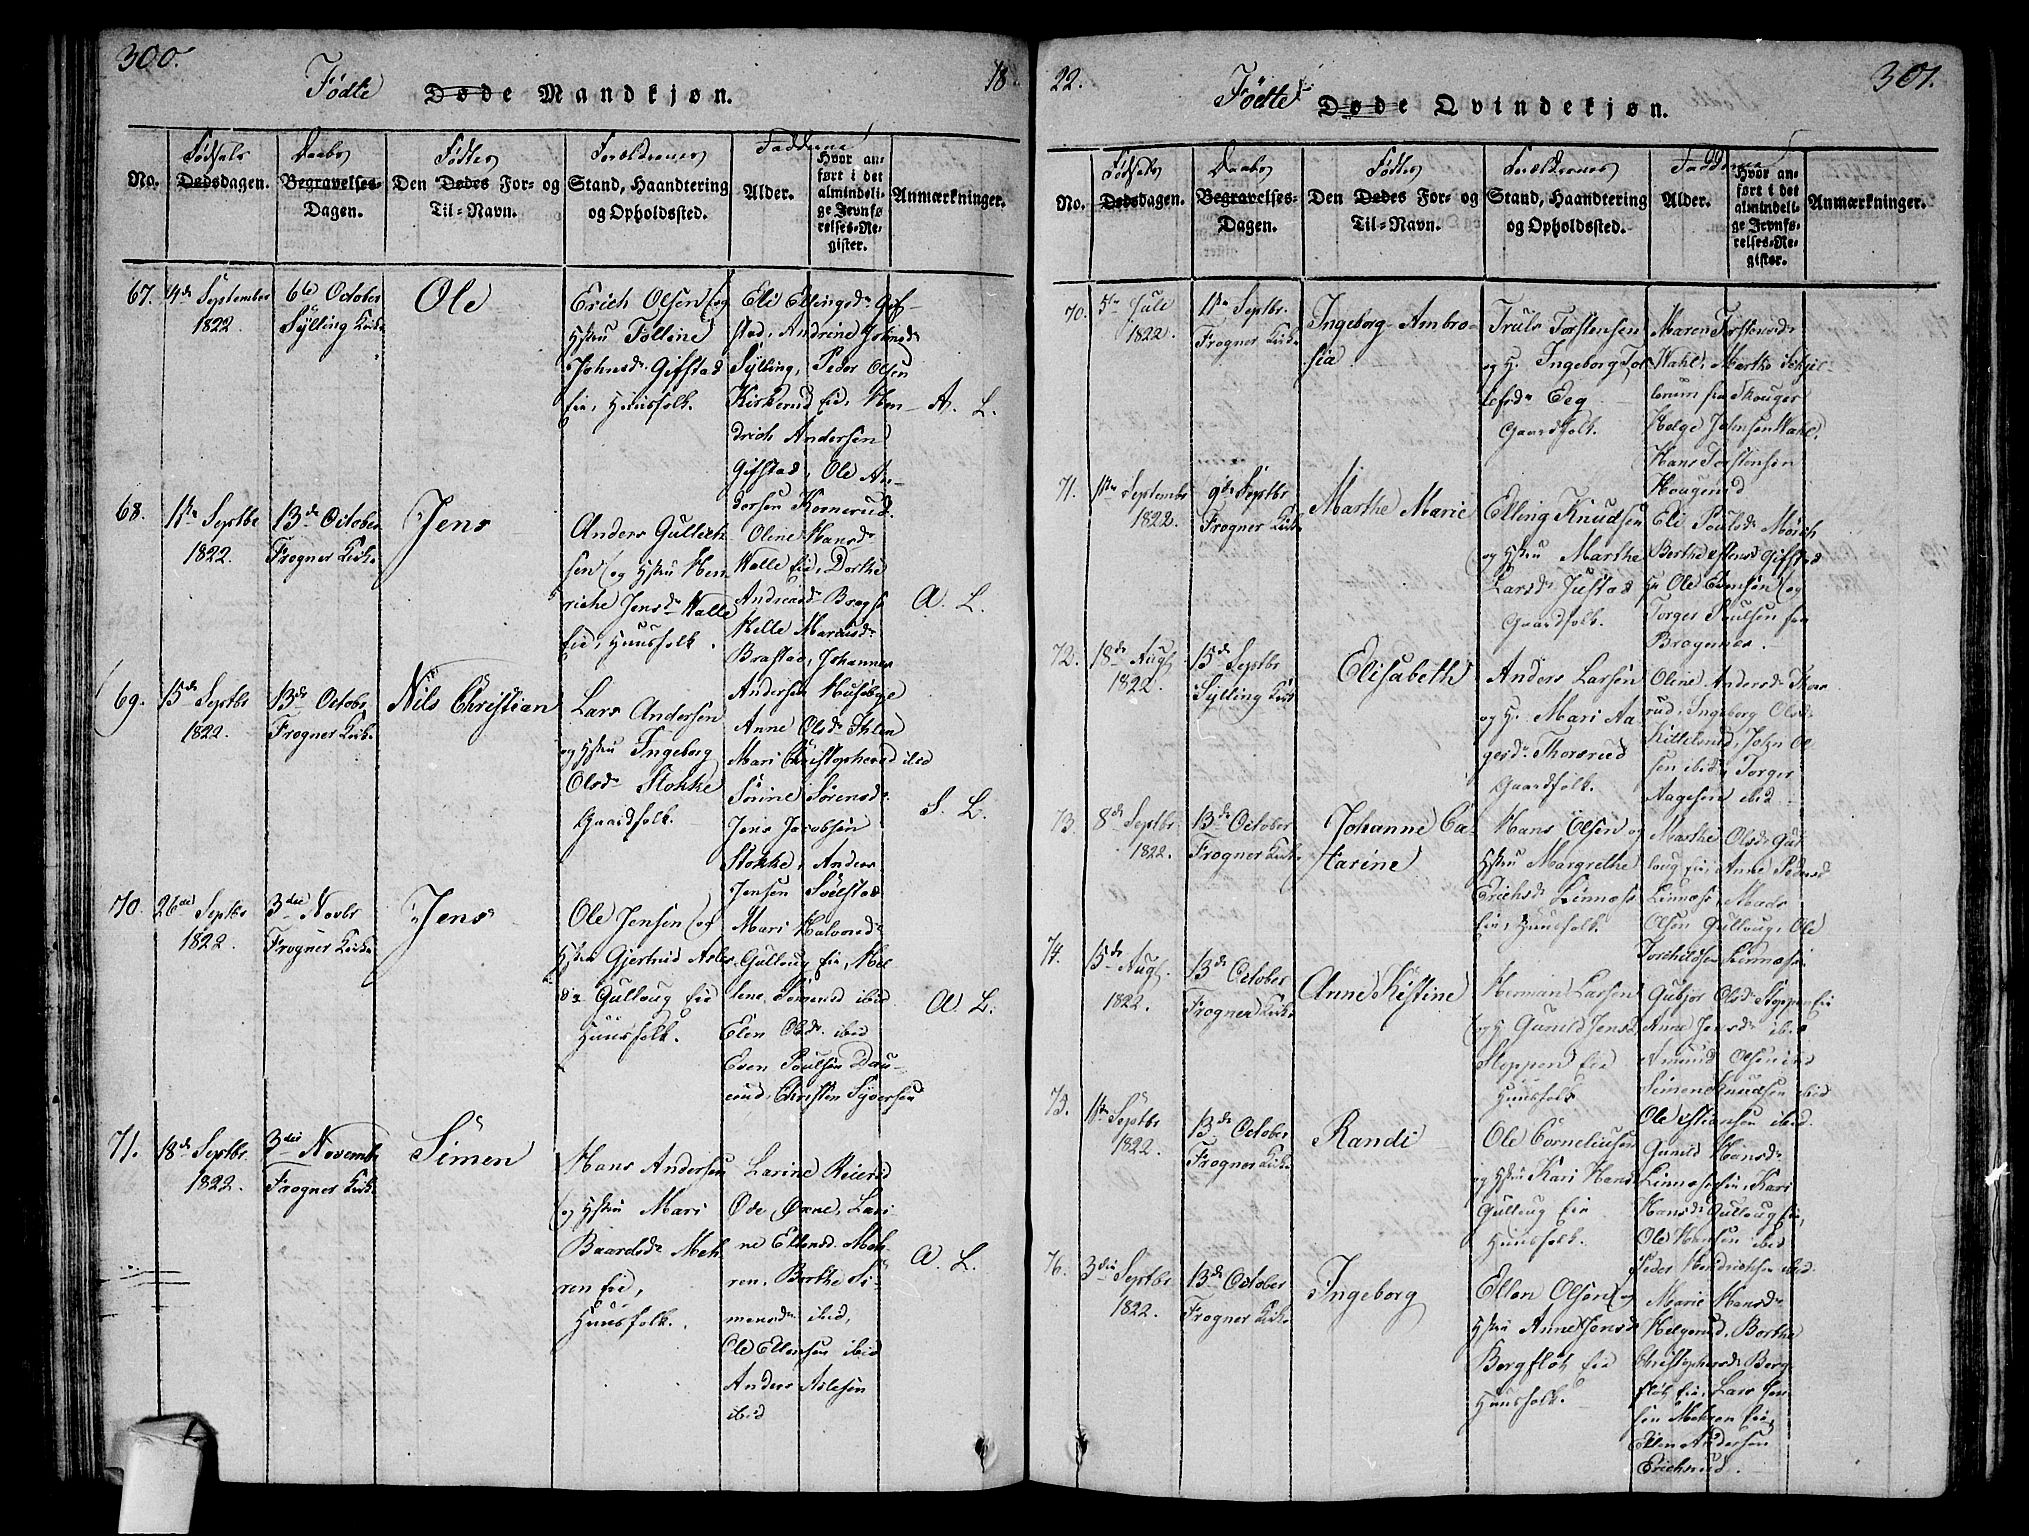 300.
Fødte Døde Mandkjøn.
18
No.
Fødsels Dødsdagen.
Daabs Begravelses-
Dagen.
Fødtes
Den Dødes For- og
Til-Navn.
Forældrenes
Stand, Haandtering
og Opholdssted.
Faddernes
Alder.
Hvor an-
ført i det
almindeli-
ge Jevnfø-
relses-Re-
gister.
Anmærkninger.
67. 4de September
1822
6te October
Sylling Kirke
Ole
Erich Olsen og
HstruOlline
Johnsdr Gifstad
Eie, Huusfolk.
Eli Ellingsdr Gif-
stad, Andrine Johnsdr
Sylling, Peder Olsen
Kirkerud Eie, Hen-
drich Andersen
Gifstad, Ole An-
dersen Kornerud.
A. L.
68. 11te Septbr
1822.
13de October
Frogner Kirke
Jens
Anders Gullich
sen og Hstru Hen
riche Jensdr Valle
Eie, Huusfolk.
Olene Hansdr
Valle Eie, Dorthe
Andreasdr
Helle Marcusdr
Brastad, Johannes
Andersen Husebye
A. L.
69. 15de Septbr
1822.
13de Octobr
Frogner Kirke
Nils Christian
Lars Andersen
og Hstru Ingeborg
Olsdr Stokke
Gaardfolk.
Anne Olsdr Ihlen
Mari Christophersd ibid
Sørine Sørensdr
Jens Jacobsen
Stokke, Anders
Jensen Solstad
S. L.
70. 26de Septbr
1822.
3die Novbr
Frogner Kirke
Jens
Ole Jensen og
Hstru Gjertrud Asles
dr Gulloug Eie
Huusfolk.
Mari Halvorsdr
Gulloug Eie, Hel
lene Simensd ibid
Elen Olsdr ibid
Even Poulsen
Christen Syversen
A. L.
71. 18de Septbr.
1822.
3die Novembr
Frogner Kirke
Simen
Hans Andersen
og Hstru Mari
Baardsdr Meh
ren Eie,
Huusfolk.
Larine Reiersd
Ode Øvne, Lari-
ne Ellensd. Meh-
ren, Berthe Si-
mensdr ibid,
Ole Ellensen ibid
Anders Aslesen
ibid
A. L.
22.
301.
Fødte Døde Qvindekjøn.
No.
Fødsels Dødsdagen.
Daabs
Begravelses-
Dagen.
Fødtes
Den Dødes For- og
Til-Navn.
Forældrenes
Stand, Haandtering
og Opholdssted.
Faddernes
Alder.
Hvor an-
ført i det
almindeli-
ge Jevnfø-
relses-Re-
gister.
Anmærkninger.
70. 5te Juli
1822.
11te Septbr.
Frogner Kirke
Ingeborg Ambro-
sia
Truls Torstensen
og H. Ingeborg Tol
lefsdr Eeg
Gaardfolk.
Maren Torstensdr
Wahl, Marthe
fra Skouger
Helge Johnsen Wahl,
Hans Torstensen
Hougerud
71. 11te Septembr
1822.
9de Septbr
Frogner Kirke
Marthe Marie
Elling Knudsen
og Hstru Marthe
Larsdr Justad
Gaardfolk.
Eli Poulsdr Mørch
Berthe Gifstad
Hr Ole Evensen og
Torger Poulsen fra
Bragernes.
72. 18de Augt
1822.
15de Septbr
Sylling Kirke
Elisabeth
Anders Larsen
og H. Mari Aa
gesdr Thorsrud
Gaardfolk.
Olene Andersdr Thors
rud, Ingeborg Olsdr
Kittelsrud, John Ol
sen ibid, Torger
Aagesen ibid
73. 8de Septbr
1822.
13de October
Frogner Kirke
Johanne Ca-
tarine
Hans Olsen og
Hstru Margrethe
Erichsdr Linnæs
Eie, Huusfolk.
Marthe Olsdr Gul
loug Eie, Anne Pedersd
Linnæs, Mads
Olsen Gulloug, Ole
Torchildsen Linnæs
74. 15de Augt.
1822.
13de October
Frogner Kirke
Anne Kistine
Herman Larsen
og H. Gunild Jensd
Stoppen Eie
Huusfolk.
Gubjør Olsdr Stoppen Eie
Anne Jensdr ibid
Amund Olsen ibid
Simen Knudsen ibid
Ole Christiansen ibid.
75. 11te Septbr
1822.
13de October
Frogner Kirke
Randi
Ole Corneliusen
og Hstru Kari Hansd
Gulloug Eie
Huusfolk.
Gunild Hansdr
Linnæs Eie, Kari
Hansdr Gulloug Eie,
Ole Hansen ibid
Peder Hendrichsen ibid
76. 3die Septbr
1822.
13de October
Frogner Kirke
Ingeborg
Ellen Olsen og
Hstru Anne Jensd
Bergfløt Eie
Huusfolk.
Marie Hansdr
Helgerud, Berthe
Christophersdr Berg
fløt Eie, Lars Han-
sen Mehren Eie,
Ellen Andersen
Erichsrud.